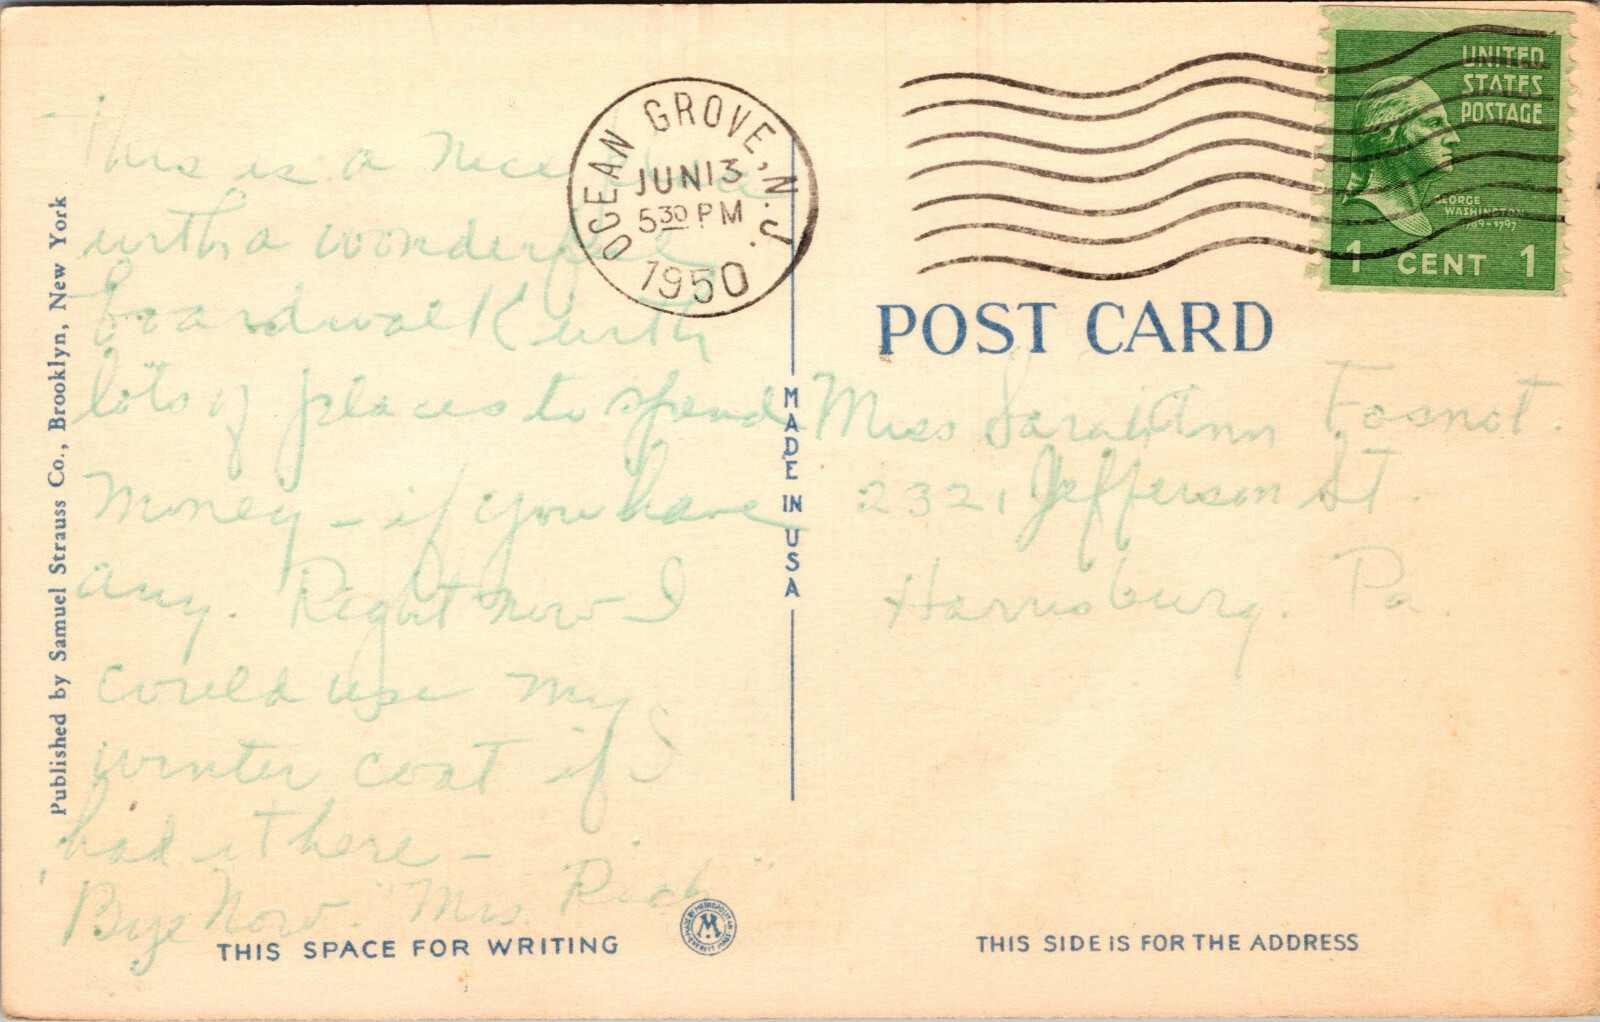 This is a nice place
with a wonderful
boardwalk with
lots of places to spend
money - if you have
any. Right now I
could use my
winter coat if I
had it here -
Bye Now. "Mrs. Rich"
Published by Samuel Strauss Co., Brooklyn, New York
THIS SPACE FOR WRITING
OCEAN GROVE, N.J.
JUN 13
5 30 PM
1950
MADE IN USA
UNITED
STATES
POSTAGE
GEORGE
WASHINGTON
1789-1797
1 CENT 1
POST CARD
Miss Sarah Ann Fosnot.
2321 Jefferson St.
Harrisburg. Pa.
THIS SIDE IS FOR THE ADDRESS